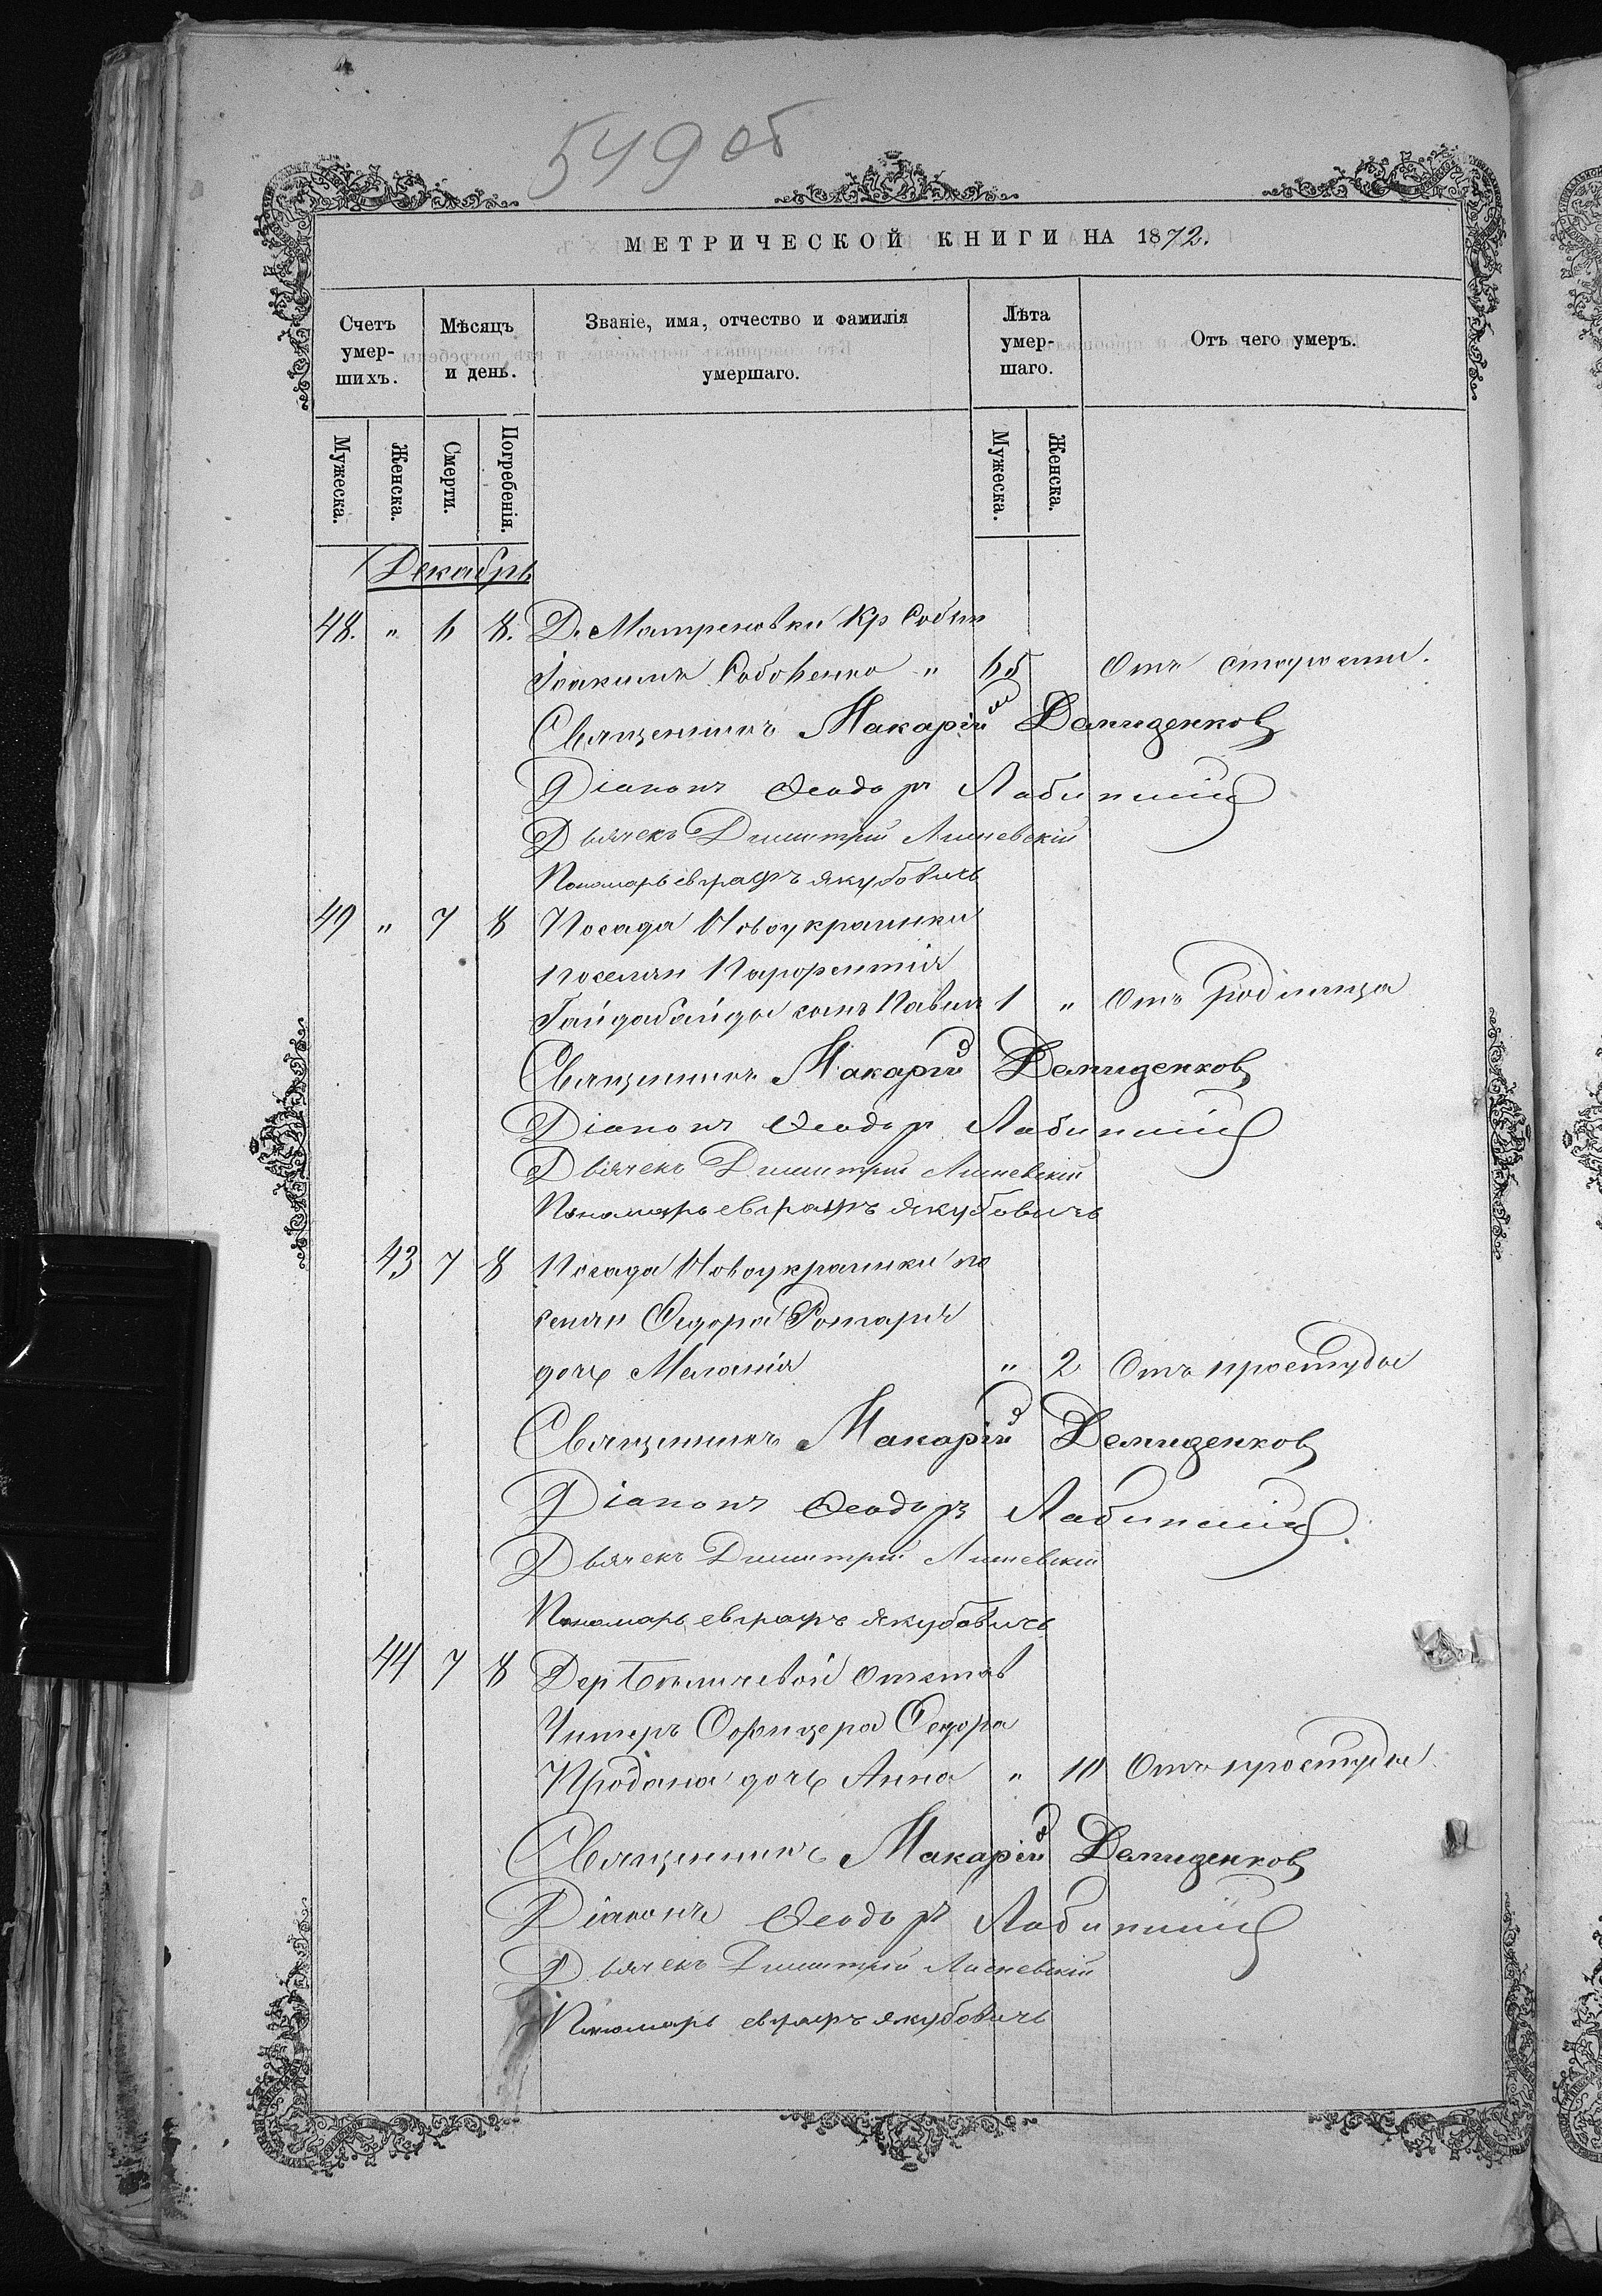 549 об
МЕТРИЧЕСКОЙ КНИГИ НА 1872.
Счетъ умер-шихъ.
Мѣсяцъ и день.
Званіе, имя, отчество и фамилія умершаго.
Лѣта умер-шаго.
Отъ чего умеръ.
Мужеска. Женска. Смерти. Погребенія. Мужеска. Женска.
Декабрь
48. " 6 8. Д. Матреновки Кр Собст
Іоакимъ " 65 Отъ старости.
Священникъ Макарій Демиденковъ
Діаконъ Ѳеодоръ Лабинскій
Дьячекъ Димитрій Лисневскій
Пономарь евграфъ якубовичь
49 " 7 8 Посада Новоукраинки
поселян
Гайдабайда сынъ Павелъ 1 " Отъ родимца
Священникъ Макарій Демиденковъ
Діаконъ Ѳеодоръ Лабинскій
Дьячекъ Димитрій Лисневскій
Пономарь евграфъ якубовичь
43 7 8 Посада Новоукраинки по
селян Ѳедора Ротаря
дочь Меланія " 2 Отъ простуды
Священникъ Макарій Демиденковъ
Діаконъ Ѳеодоръ Лабинскій
Дьячекъ Димитрій Лисневскій
Пономарь евграфъ якубовичь
44 7 8 Дер отстав
Унтеръ Офицера Ѳедора
Продана дочь Анна " 10 Отъ простуды
Священникъ Макарій Демиденковъ
Діаконъ Ѳеодоръ Лабинскій
Дьячекъ Димитрій Лисневскій
Пономарь евграфъ якубовичь